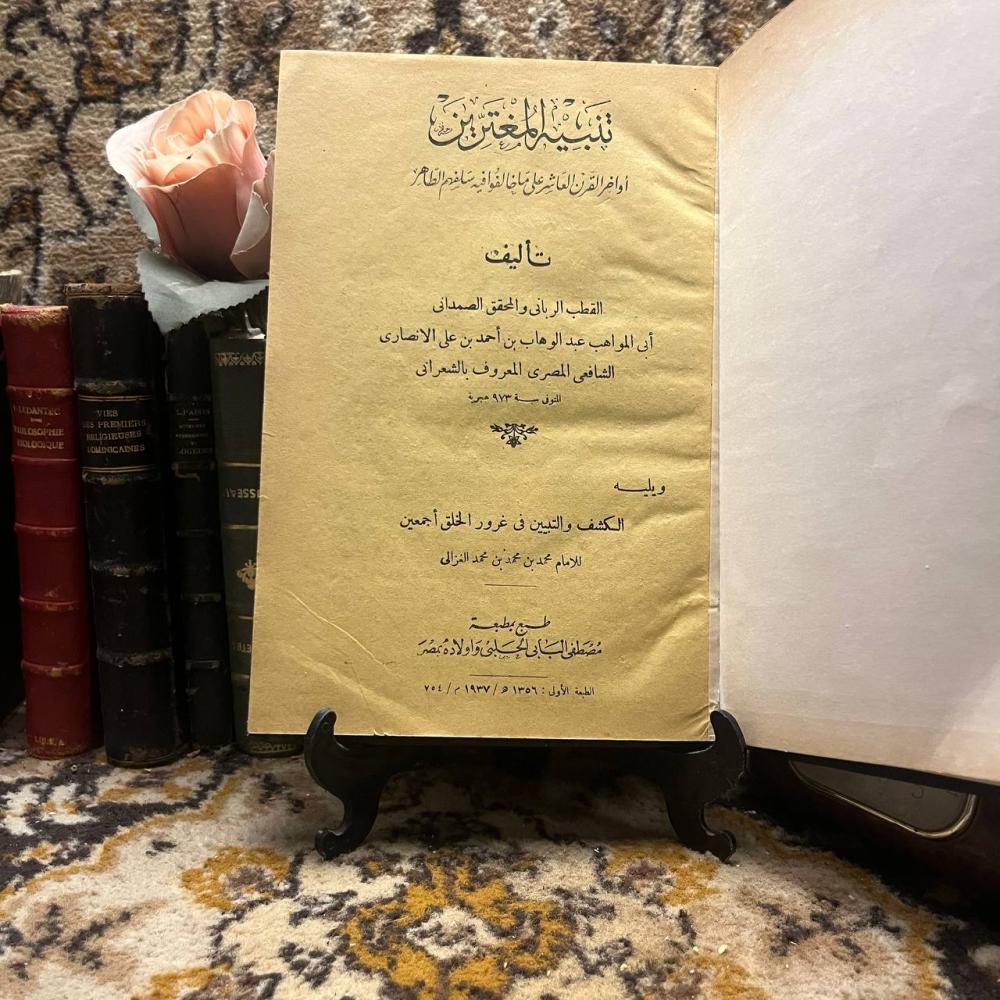 تنبيه المغترين
أواخر القرن العاشر على ما خالفوا فيه سلفهم الطاهر
تأليف
القطب الربانى والمحقق الصمدانى
أبى المواهب عبد الوهاب بن أحمد بن على الانصارى
الشافعى المصرى المعروف بالشعرانى
المتوفى سنة ٩٧٣ هجرية
ويليه
الكشف والتبيين فى غرور الخلق أجمعين
للامام محمد بن محمد بن محمد الغزالى
طبع بمطبعة
مصطفى البابى الحلبى وأولاده بمصر
الطبعة الأولى : ١٣٥٦ ھ / ١٩٣٧ م / ٧٥٤
LEDANTEC
PHILOSOPHIE
BIOLOGIQUE
VIES
DES PREMIERS
RELIGIEUSES
DOMINICAINES